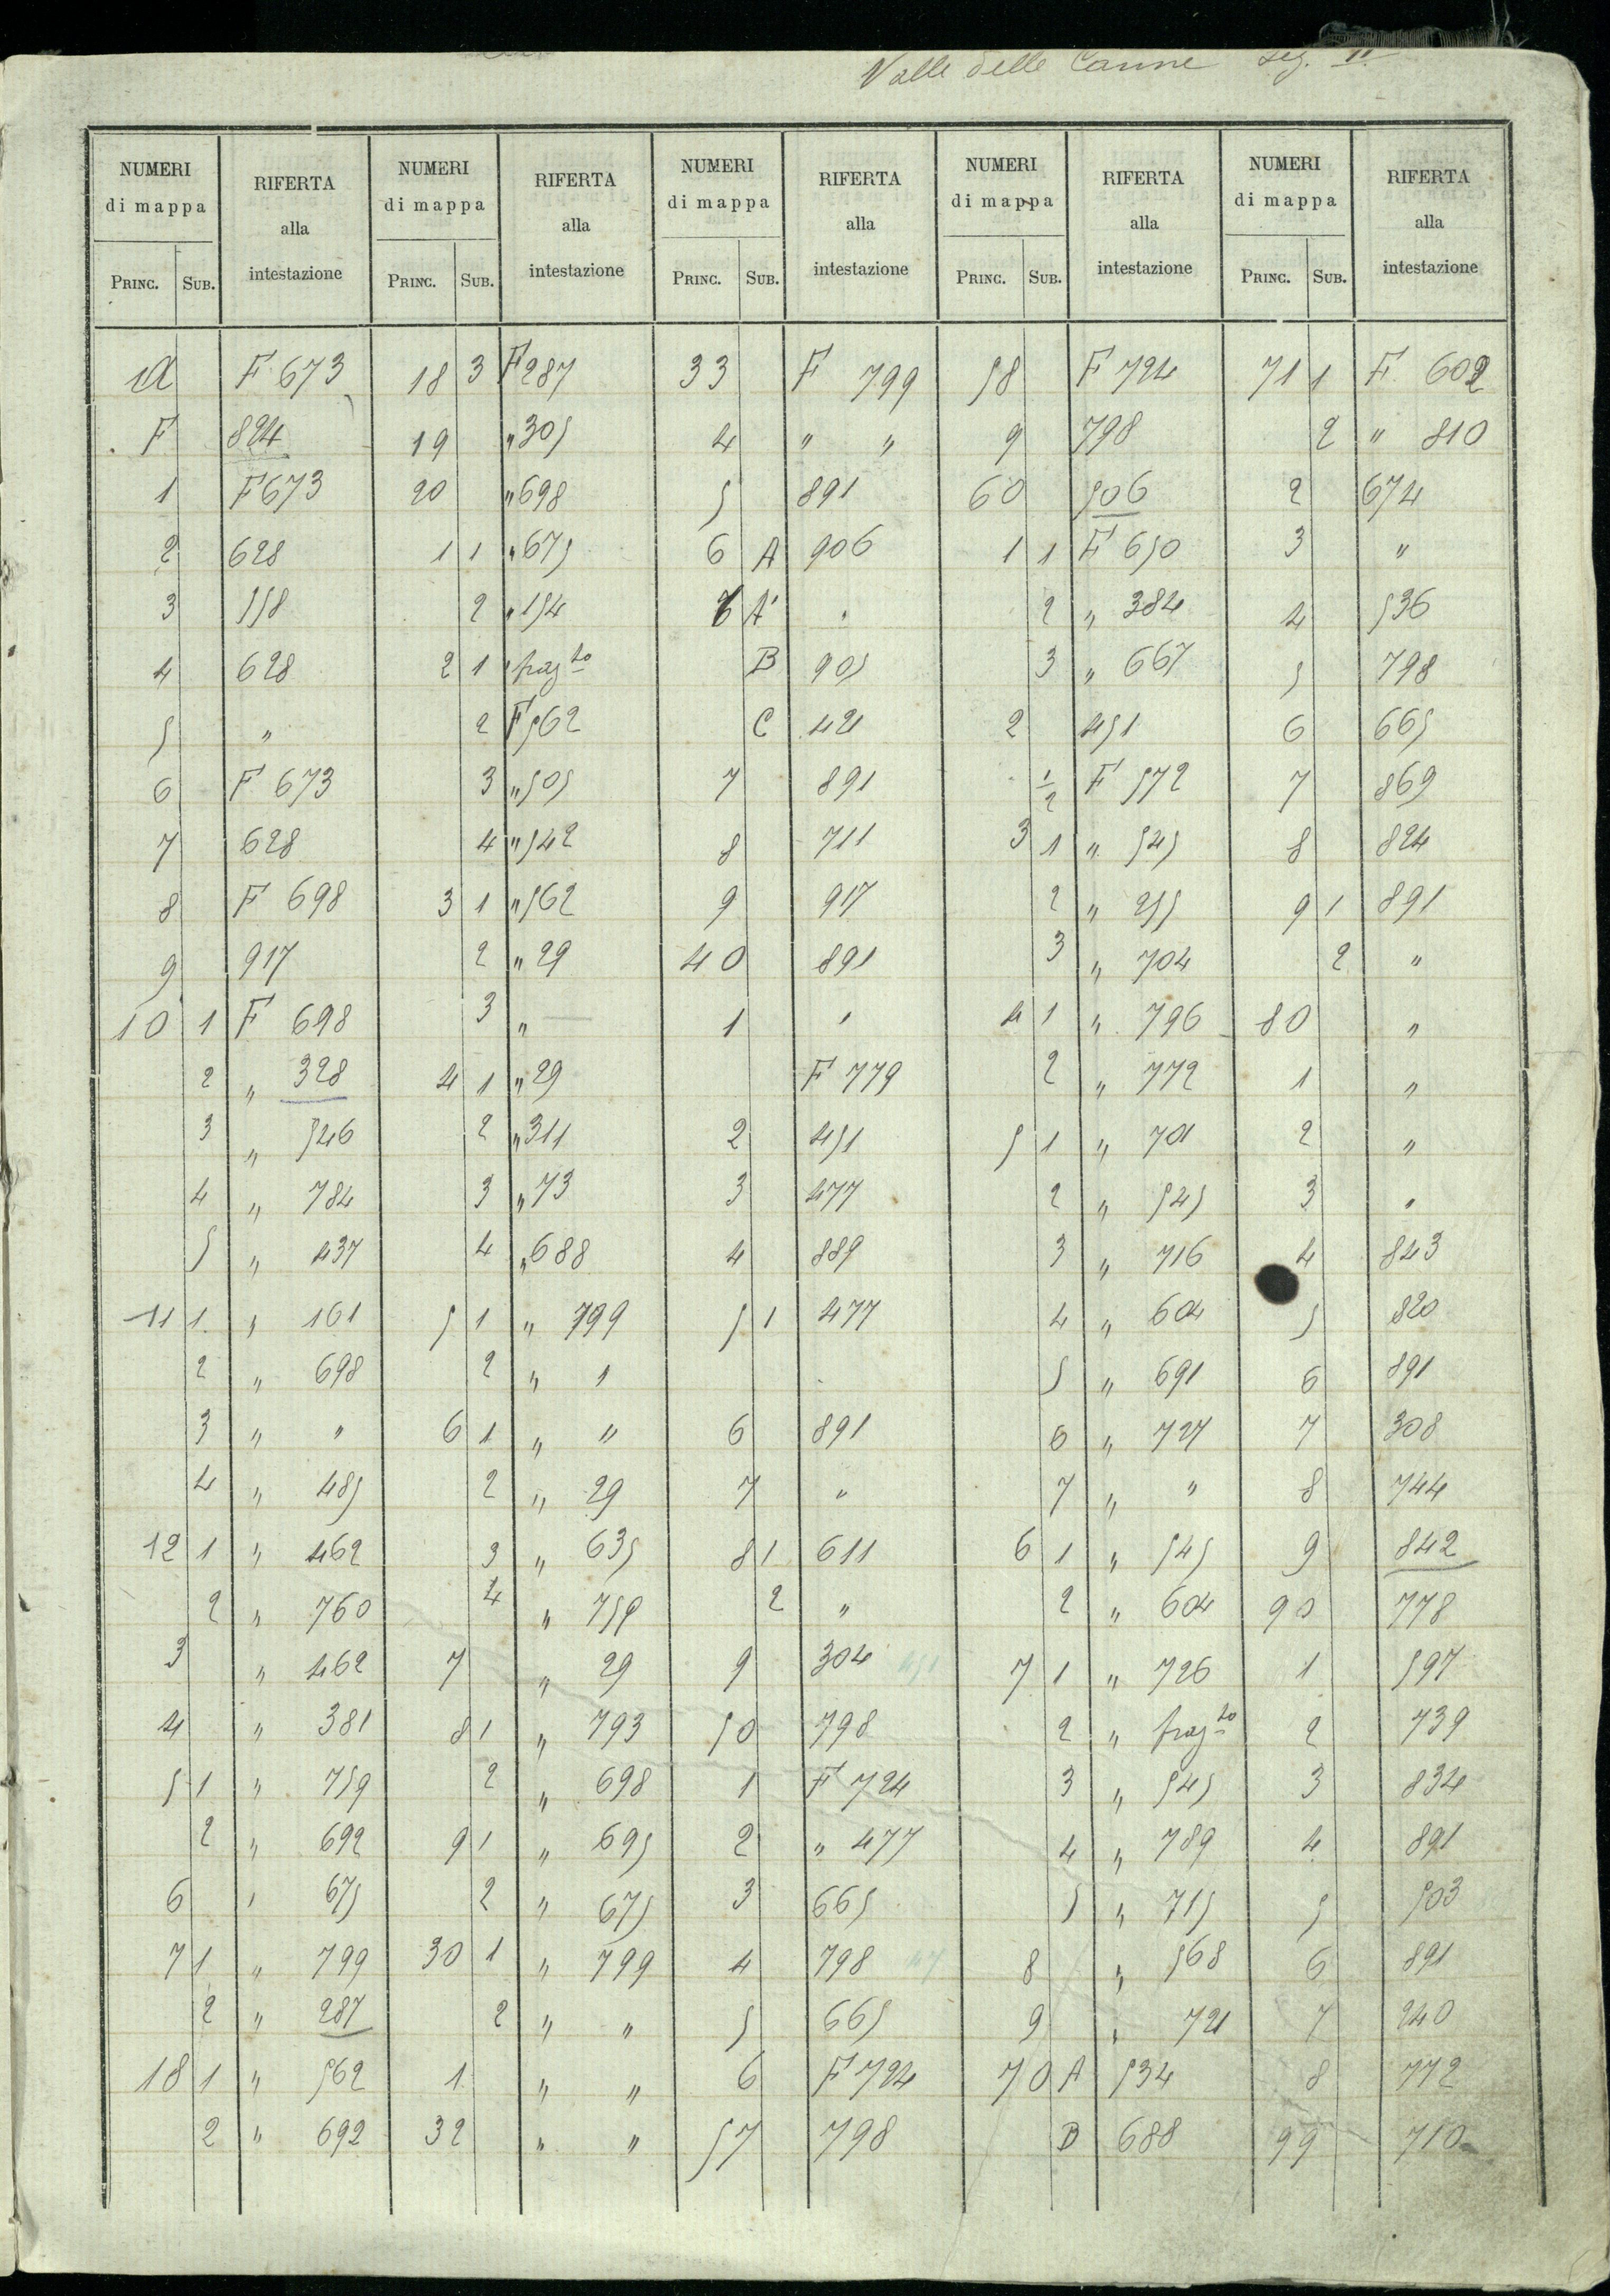 Valle delle Canne sez. II
NUMERI di mappa RIFERTA alla intestazione NUMERI di mappa RIFERTA alla intestazione NUMERI di mappa RIFERTA alla intestazione NUMERI di mappa RIFERTA alla intestazione NUMERI di mappa RIFERTA alla intestazione
PRINC. SUB. PRINC. SUB. PRINC. SUB. PRINC. SUB. PRINC. SUB.
A F 673 18 3 F 287 33 F 799 58 F 724 71 1 F 602
F 824 19 " 305 4 " " 9 798 2 " 810
1 F 673 20 " 698 5 891 60 506 2 674
2 628 1 1 " 675 6 A 906 1 1 F 650 3 "
3 558 2 " 154 6 A' " 2 " 384 4 536
4 628 2 1 " frazto B 905 3 " 667 5 798
5 " 2 F 562 C 421 2 451 6 665
6 F 673 3 " 505 7 891 1/2 F 572 7 869
7 628 4 " 542 8 711 3 1 " 545 8 824
8 F 698 3 1 " 562 9 917 2 " 255 9 1 891
9 917 2 " 29 40 891 3 " 704 2 "
10 1 F 698 3 " — 1 " 4 1 " 796 80 "
2 " 328 4 1 " 29 F 779 2 " 772 1 "
3 " 546 2 " 311 2 451 5 1 " 701 2 "
4 " 784 3 " 73 3 477 2 " 545 3 "
5 " 437 4 " 688 4 889 3 " 716 4 843
11 1 " 161 5 1 " 799 5 1 477 4 " 604 5 820
2 " 698 2 " 1 5 " 691 6 891
3 " " 6 1 " " 6 891 6 " 727 7 308
4 " 485 2 " 29 7 " 7 " " 8 744
12 1 " 462 3 " 635 8 1 611 6 1 " 545 9 842
2 " 760 4 " 759 2 " 2 " 604 90 778
3 " 462 7 " 29 9 304 7 1 " 726 1 597
4 " 381 8 1 " 793 50 798 2 " frazto 2 739
5 1 " 759 2 " 698 1 F 724 3 " 545 3 834
2 " 692 9 1 " 695 2 " 477 4 " 789 4 891
6 " 675 2 " 675 3 665 5 " 715 5 503
7 1 " 799 30 1 " 799 4 798 8 " 568 6 891
2 " 287 2 " " 5 665 9 " 721 7 240
18 1 " 562 1 " " 6 F 724 70 A 534 8 772
2 " 692 32 " " 57 798 B 688 99 710